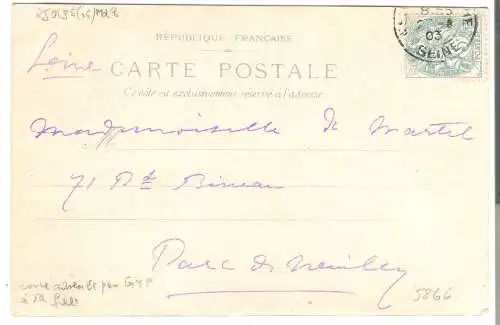 8-55
03
SEINE
RÉPUBLIQUE FRANÇAISE
Seine
CARTE POSTALE
Ce côté est exclusivement réservé à l'adresse
M
Mademoiselle de Martel
71 Bd Bineau
Parc de Neuilly
carte adressée par GYP
à sa fille
5866